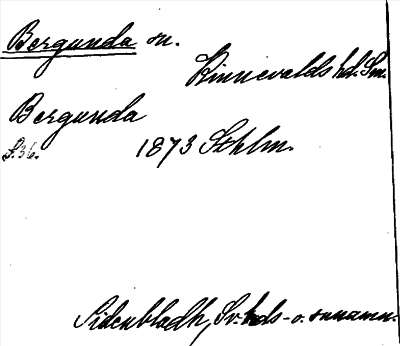 Bergunda sn.
Kinnevalds hd. Sm.
Bergunda
S. 36. 1873 Sthlm.
Sidenbladh, Sv. hds- o. snnamn.